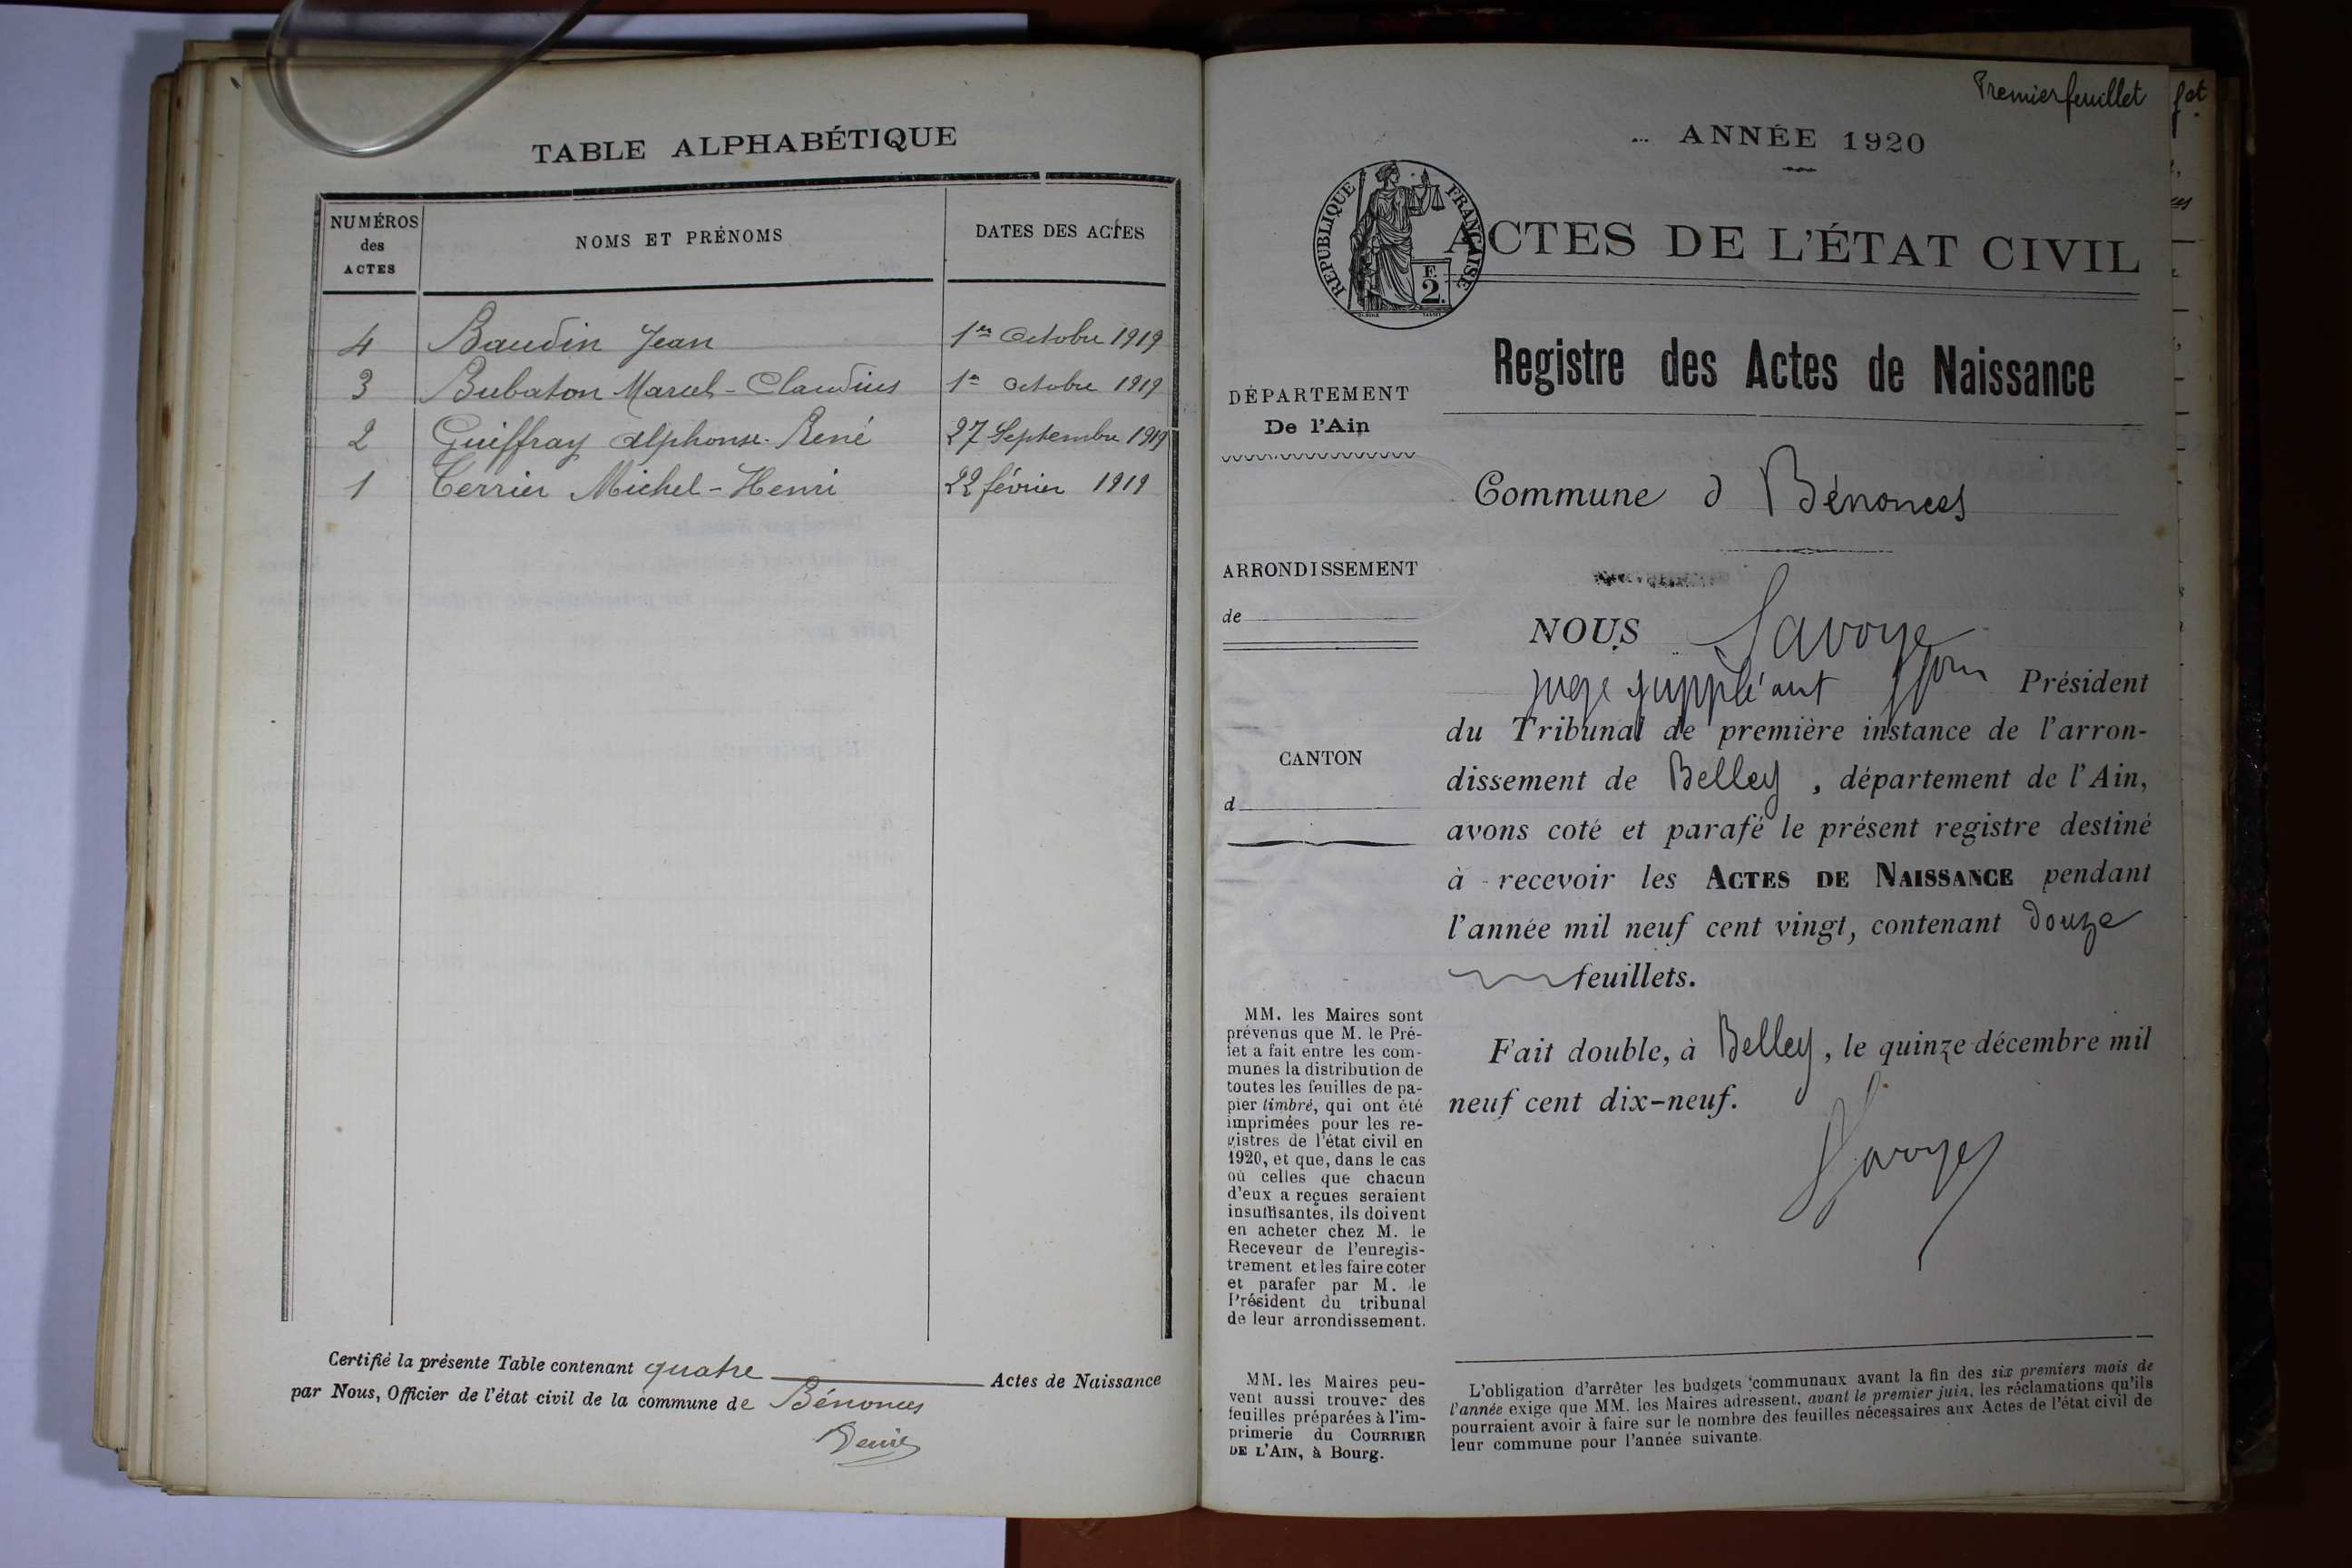 TABLE ALPHABÉTIQUE
NUMÉROS des ACTES
NOMS ET PRÉNOMS
DATES DES ACTES
4 Baudin Jean 1er Octobre 1919
3 Bubaton Marcel-Claudius 1er octobre 1919
2 Guiffray Alphonse-René 27 Septembre 1919
1 Terrier Michel-Henri 22 février 1919
Certifié la présente Table contenant quatre Actes de Naissance
par Nous, Officier de l'état civil de la commune de Bénonces
Premier feuillet
ANNÉE 1920
RÉPUBLIQUE FRANÇAISE
F. 2.
ACTES DE L'ÉTAT CIVIL
Registre des Actes de Naissance
DÉPARTEMENT
De l'Ain
Commune d Bénonces
ARRONDISSEMENT
de
CANTON
d
NOUS Savoye
juge suppléant Président
du Tribunal de première instance de l'arron-
dissement de Belley, département de l'Ain,
avons coté et parafé le présent registre destiné
à recevoir les ACTES DE NAISSANCE pendant
l'année mil neuf cent vingt, contenant douze
feuillets.
Fait double, à Belley, le quinze décembre mil
neuf cent dix-neuf.
Savoye
MM. les Maires sont
prévenus que M. le Pré-
fet a fait entre les com-
munes la distribution de
toutes les feuilles de pa-
pier timbré, qui ont été
imprimées pour les re-
gistres de l'état civil en
1920, et que, dans le cas
où celles que chacun
d'eux a reçues seraient
insuffisantes, ils doivent
en acheter chez M. le
Receveur de l'enregis-
trement et les faire coter
et parafer par M. le
Président du tribunal
de leur arrondissement.
MM. les Maires peu-
vent aussi trouver des
feuilles préparées à l'im-
primerie du COURRIER
DE L'AIN, à Bourg.
L'obligation d'arrêter les budgets communaux avant la fin des six premiers mois de
l'année exige que MM. les Maires adressent, avant le premier juin, les réclamations qu'ils
pourraient avoir à faire sur le nombre des feuilles nécessaires aux Actes de l'état civil de
leur commune pour l'année suivante.